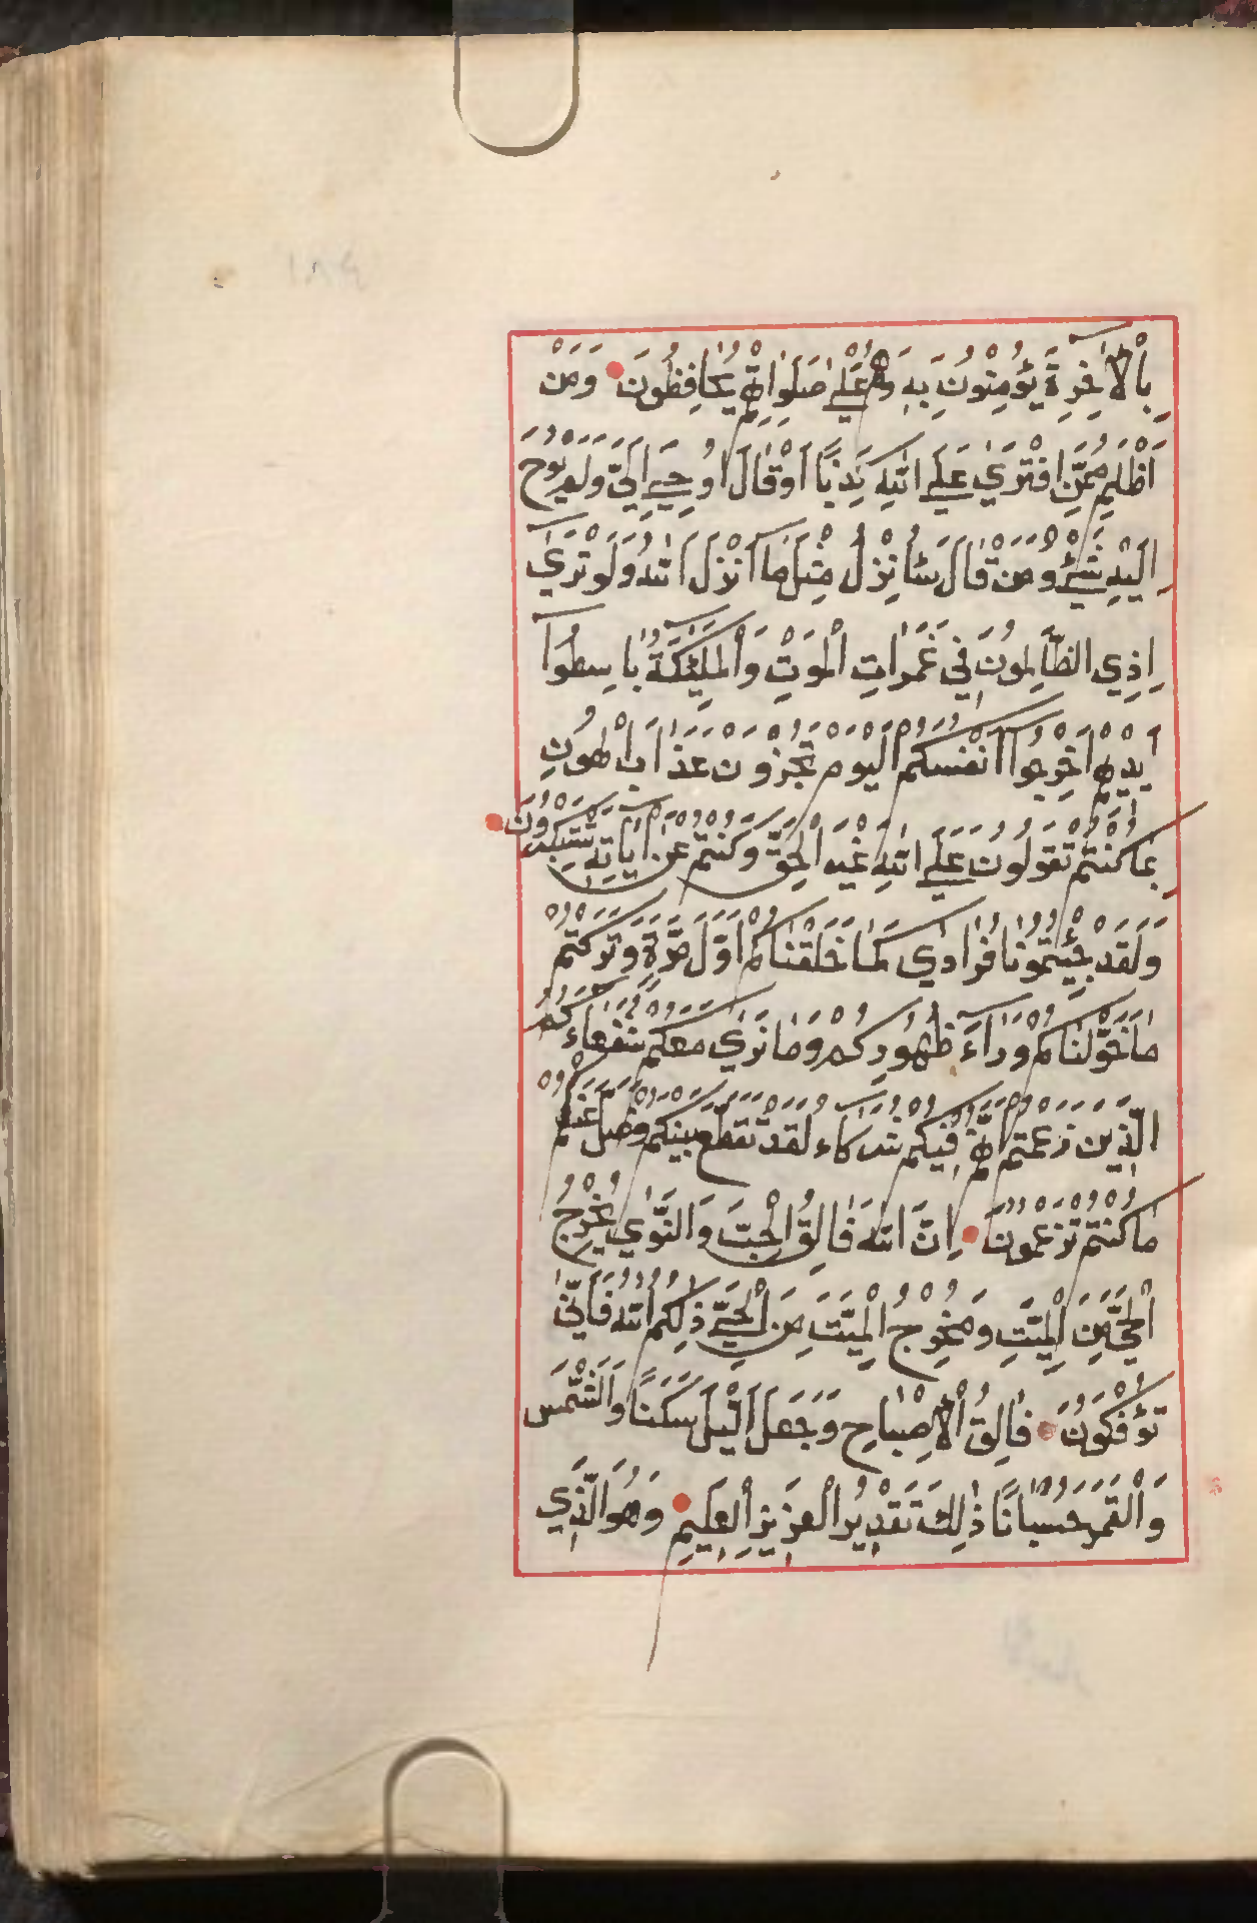 بِالْاٰخِرَةِ يُؤْمِنُونَ بِهِ وَهُمْ عَلٰي صَلَوٰاتِهِمْ يُحٰافِظُونَ وَمَنْ
اَظْلَمُ مِمَّنِ افْتَرٰي عَلَي اللّٰهِ كَذِبًا اَوْ قٰالَ اُوحِيَ اِلَيَّ وَلَمْ يُوحَ
اِلَيْهِ شَيْءٌ وَمَنْ قٰالَ سَاُنْزِلُ مِثْلَ مٰا اَنْزَلَ اللّٰهُ وَلَوْ تَرٰي
اِذِي الظّٰالِمُونَ فِي غَمَرٰاتِ الْمَوْتِ وَالْمَلٰئِكَةُ بٰاسِطُوا
اَيْدِيهِمْ اَخْرِجُوا اَنْفُسَكُمُ الْيَوْمَ تُجْزَوْنَ عَذٰابَ الْهُونِ
بِمٰا كُنْتُمْ تَقُولُونَ عَلَي اللّٰهِ غَيْرَ الْحَقِّ وَكُنْتُمْ عَنْ اٰيٰاتِهِ تَسْتَكْبِرُونَ
وَلَقَدْ جِئْتُمُونٰا فُرٰادٰي كَمٰا خَلَقْنٰاكُمْ اَوَّلَ مَرَّةٍ وَتَرَكْتُمْ
مٰا خَوَّلْنٰاكُمْ وَرٰاءَ ظُهُورِكُمْ وَمٰا نَرٰي مَعَكُمْ شُفَعٰاءَكُمُ
الَّذِينَ زَعَمْتُمْ اَنَّهُمْ فِيكُمْ شُرَكٰاءُ لَقَدْ تَقَطَّعَ بَيْنَكُمْ وَضَلَّ عَنْكُمْ
مٰا كُنْتُمْ تَزْعُمُونَ اِنَّ اللّٰهَ فٰالِقُ الْحَبِّ وَالنَّوٰي يُخْرِجُ
الْحَيَّ مِنَ الْمَيِّتِ وَمُخْرِجُ الْمَيِّتِ مِنَ الْحَيِّ ذٰلِكُمُ اللّٰهُ فَاَنّٰي
تُؤْفَكُونَ فٰالِقُ الْاِصْبٰاحِ وَجَعَلَ اللَّيْلَ سَكَنًا وَالشَّمْسَ
وَالْقَمَرَ حُسْبٰانًا ذٰلِكَ تَقْدِيرُ الْعَزِيزِ الْعَلِيمِ وَهُوَ الَّذِي